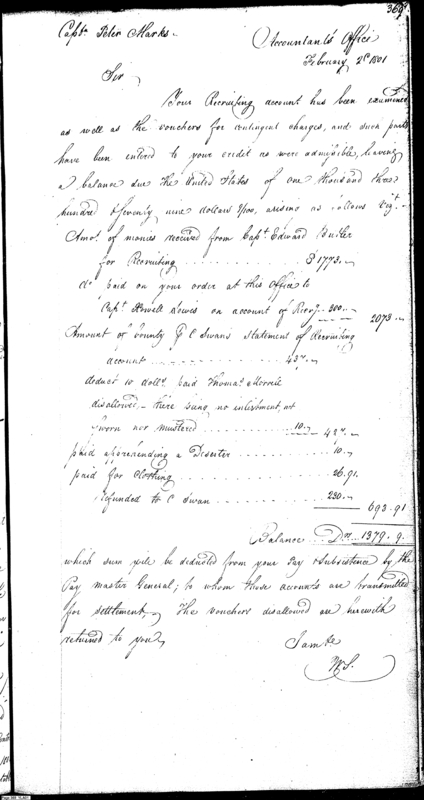 369
Capt. Peter Marks.
Accountant's Office
February 2d 1801
Sir
Your Recruiting account has been examined
as well as the vouchers for contingent charges, and such parts
have been entered to your credit as were admissible, leaving
a balance due the United States of one thousand three
hundred & seventy nine dollars 9/100, arising as follows
Amot. of monies received from Capt. Edward Butler
for Recruiting . . . . . . . . . $ 1773.
do. paid on your order at this Office to
Capt. Howell Lewis on account of .. 300. 2073
Amount of bounty C Swan's statement of Recruiting
account . . . . . . . . . 43
deduct 10 dolls. paid Thomas
disallowed - there being no enlistment, not
sworn nor mustered . . . . . . . 10. 42
paid apprehending a Deserter . . . . . . 10.
paid for Clothing . . . . . . . . . . 26.91.
refunded to C Swan . . . . . . . . . 230.
693.91
Balance . . . 1379.9.
which sum will be deducted from your Pay & subsistence by the
Pay master General; to whom those accounts are transmitted
for settlement. The vouchers disallowed are herewith
returned to you
I am &c
W. S.